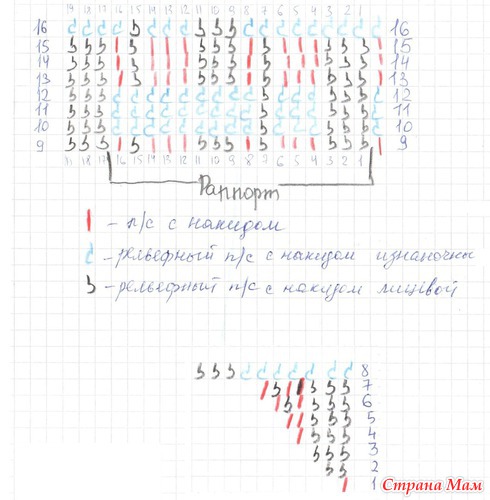 19 18 17 16 15 14 13 12 11 10 9 8 7 6 5 4 3 2 1
16 16
15 15
14 14
13 13
12 12
11 11
10 10
9 9
17 16 15 14 13 12 11 10 9 8 7 6 5 4 3 2 1
Раппорт
- п/с с накидом
- рельефный п/с с накидом изнаночный
- рельефный п/с с накидом лицевой
8
7
6
5
4
3
2
1
Страна Мам